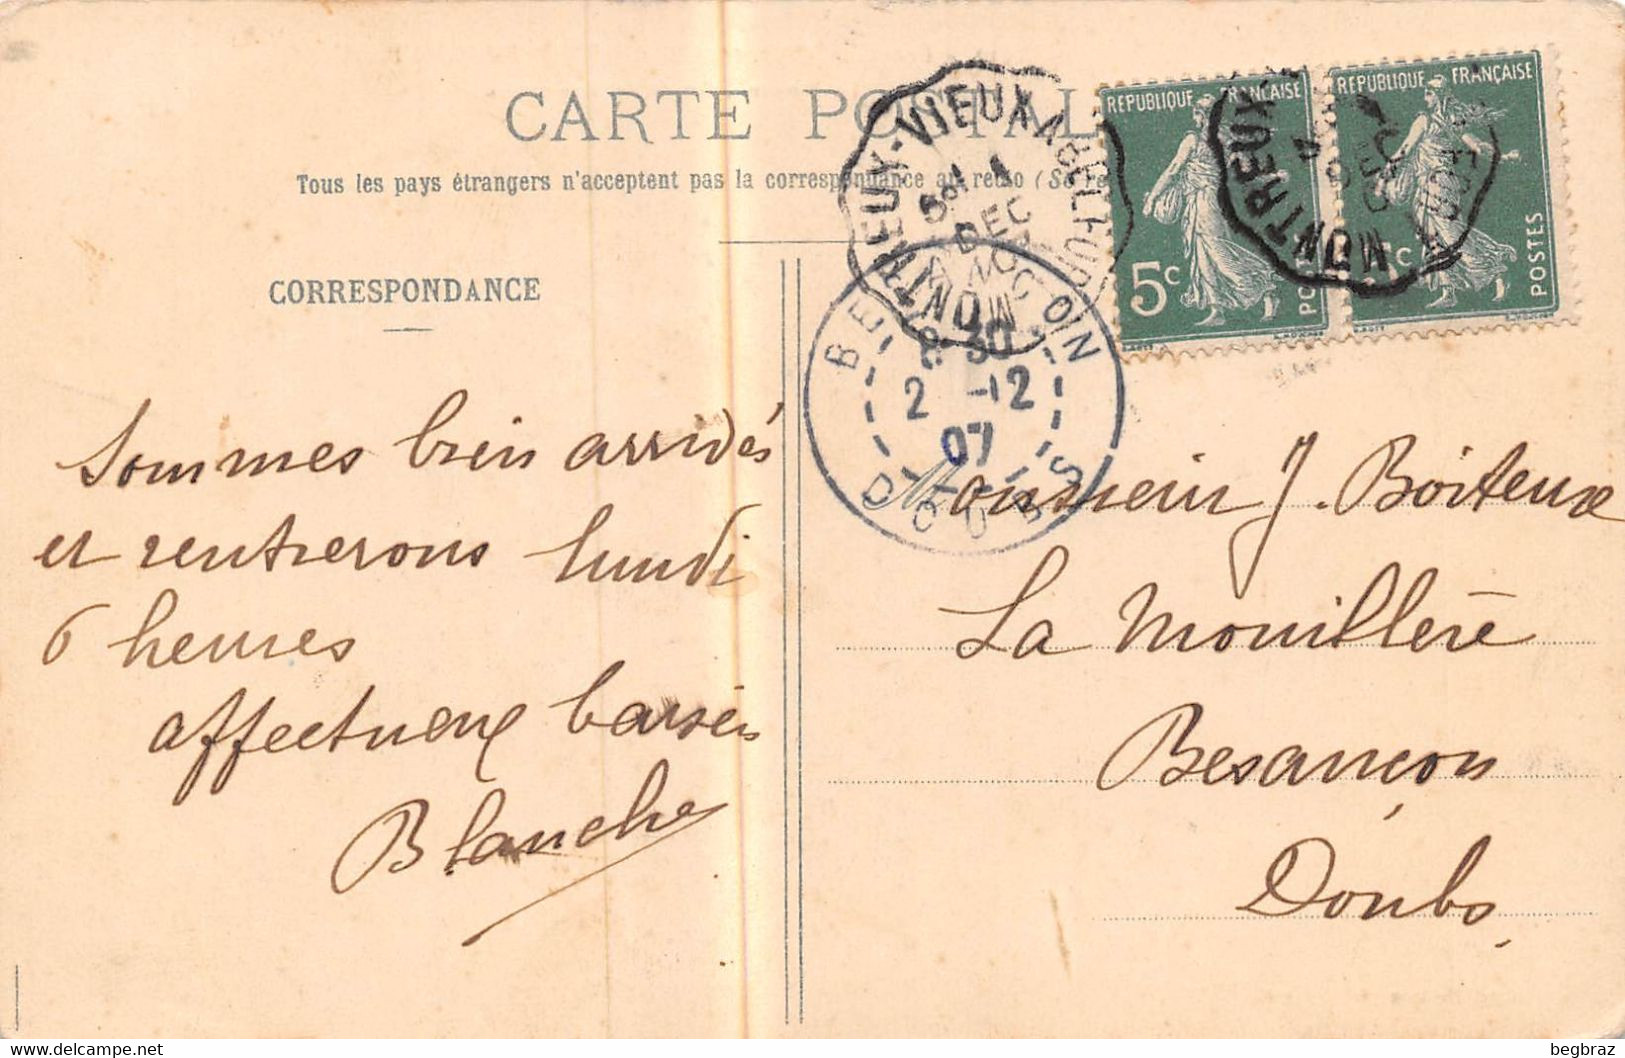 CARTE POSTALE
Tous les pays étrangers n'acceptent pas la correspondance au recto (Se re
CORRESPONDANCE
RÉPUBLIQUE FRANÇAISE
5c
POSTES
RÉPUBLIQUE FRANÇAISE
5c
POSTES
MONTREUX-VIEUX A BELFORT
1
DEC
07
MONTREUX
BESANCON
8 30
2 -12
07
DOUBS
Sommes bien arrivés
et rentrerons lundi
6 heures
affectueux baisers
Blanche
Monsieur J. Boiteux
La Mouillère
Besançon
Doubs
begbraz